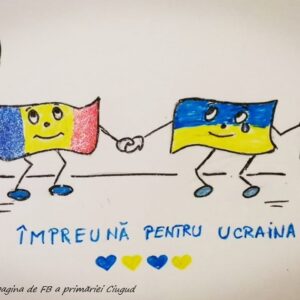 ÎMPREUNĂ PENTRU UCRAINA
pagina de FB a primăriei Ciugud